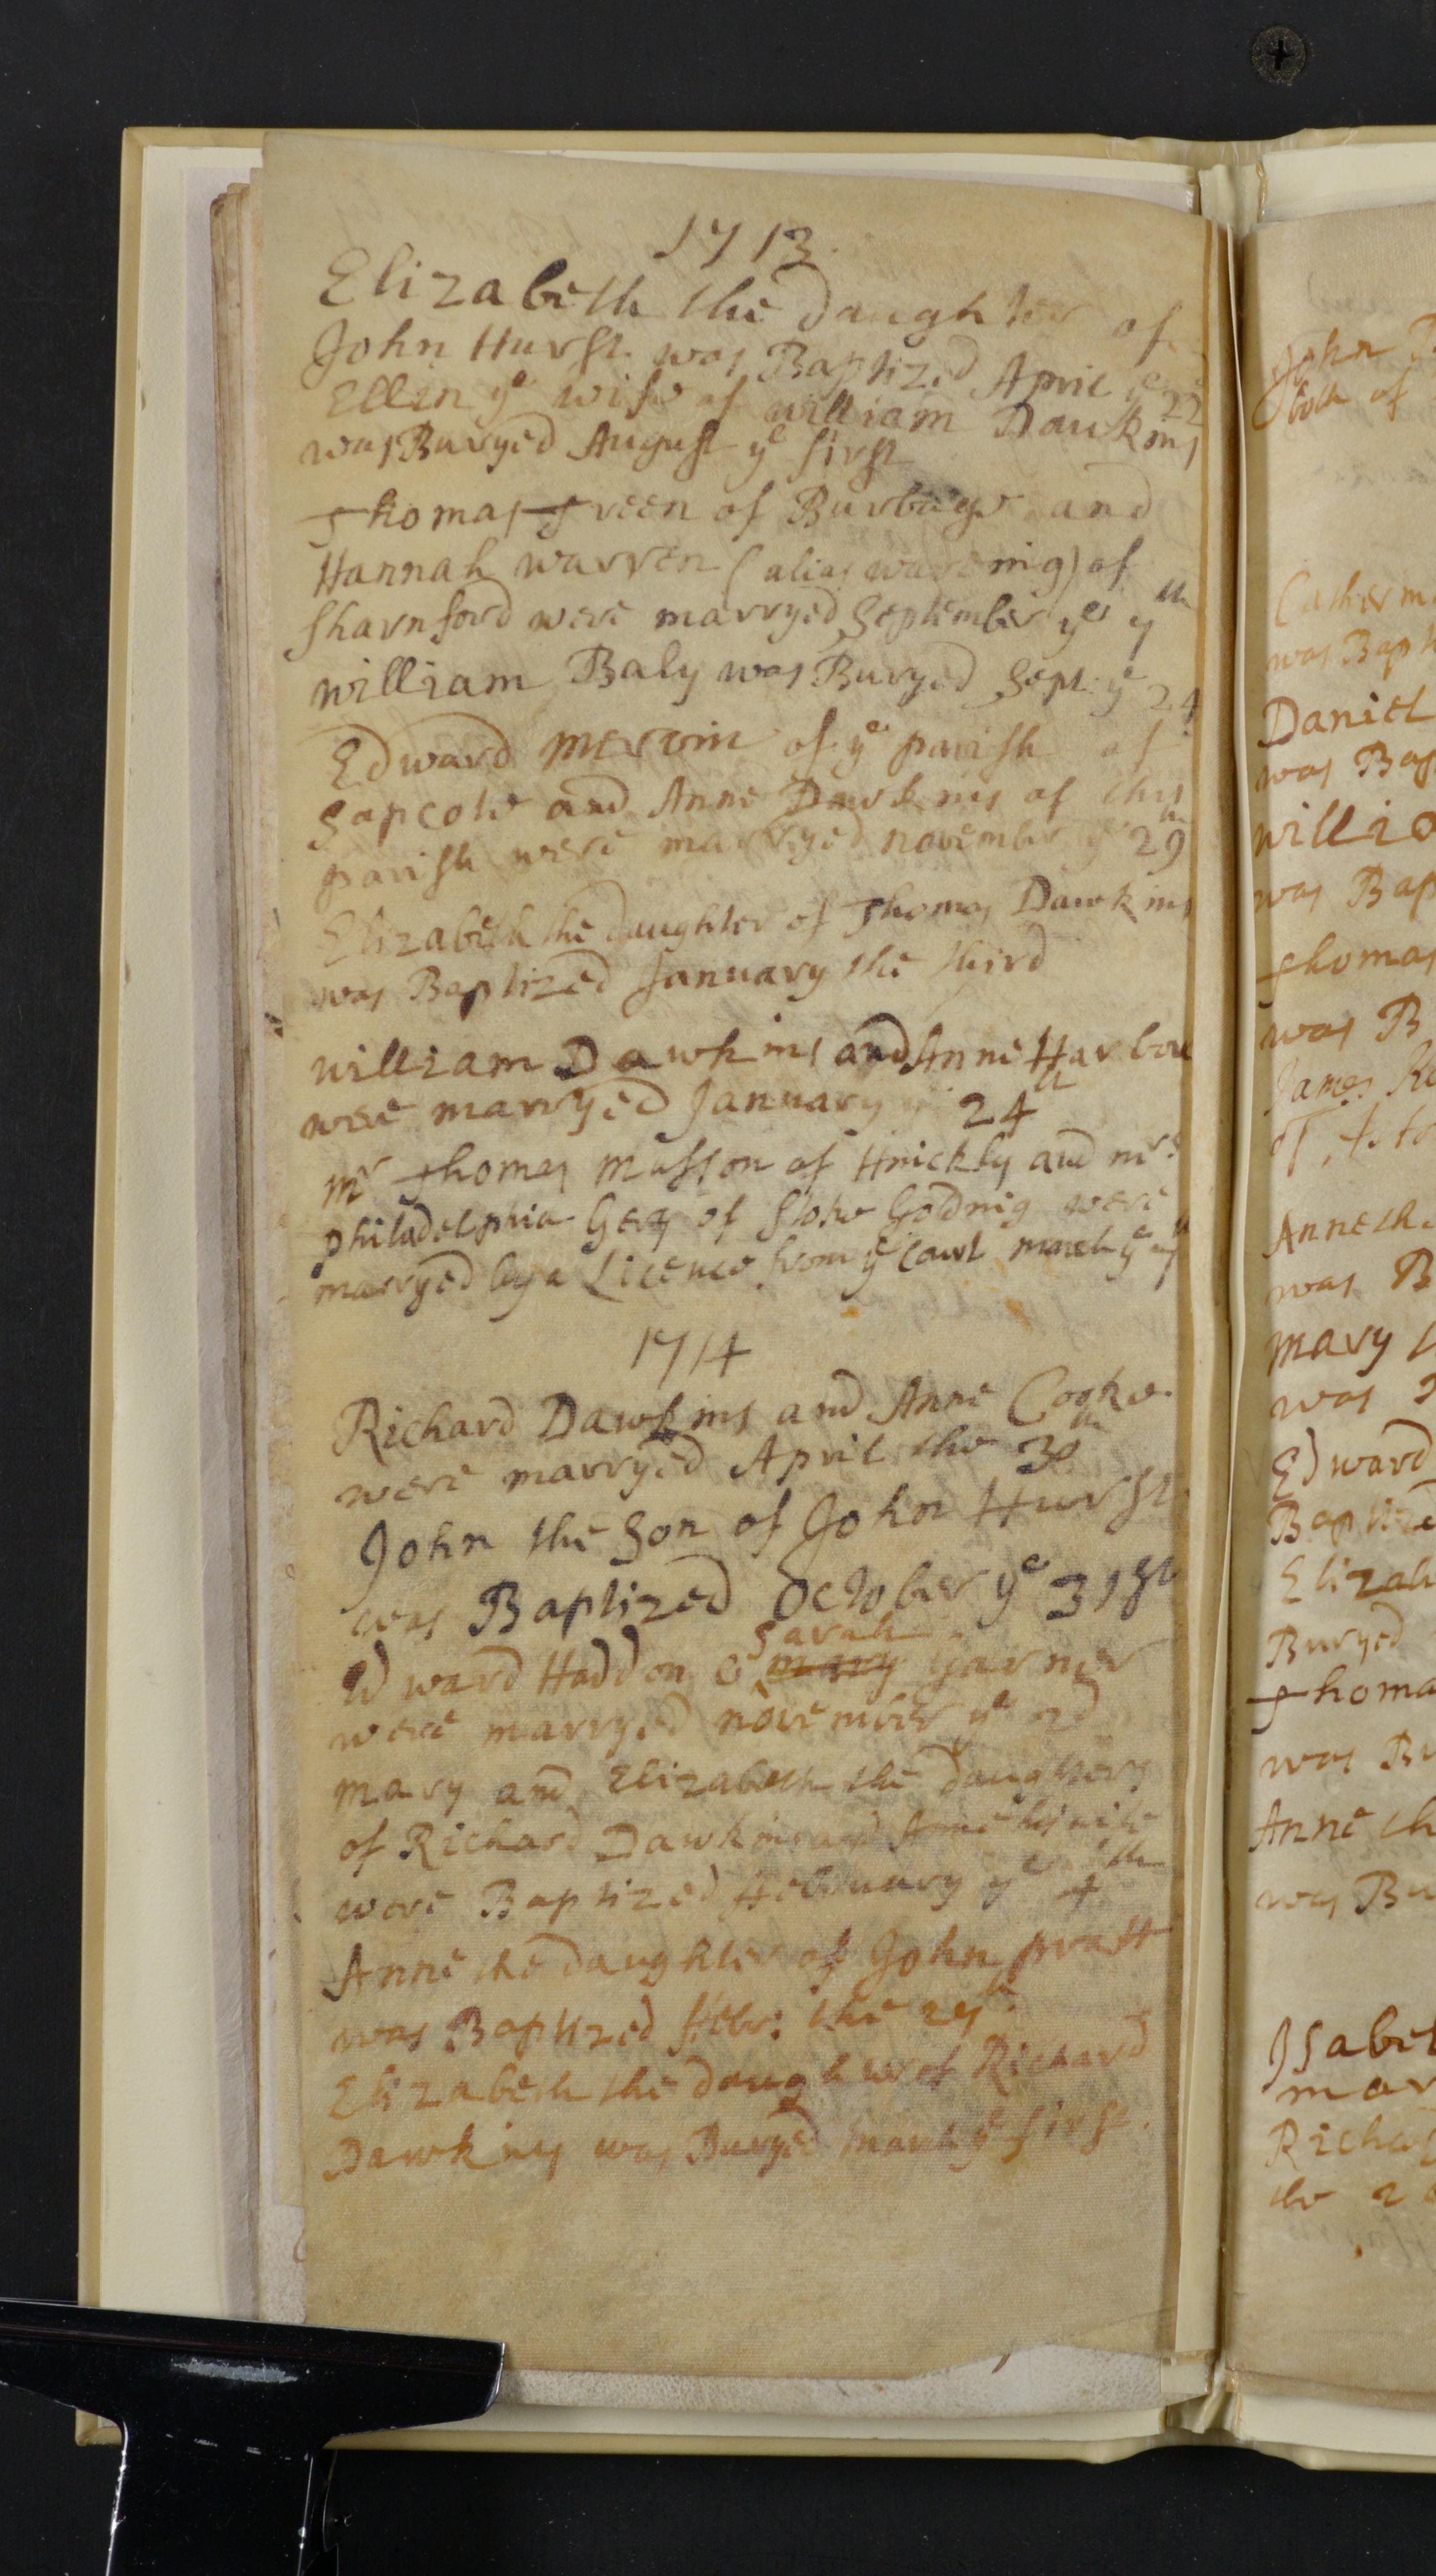 1713.
Elizabeth the daughter of
John Hurst was Baptized April ye 22
Ellin ye wife of william Dawkins
was Buryed August ye first
Thomas Green of Burbage and
Hannah warren (alias wareing) of
sharnford were marryed September ye 7th
william Baly was Buryed Sept: ye 24
Edward mervin of ye parish of
Sapcote and Anne Dawkins of this
parish were marryed november ye 29th
Elizabeth the daughter of Thomas Dawkins
was Baptized January the third
william Dawkins and Anne
were marryed January ye 24th
mr Thomas musson of Hinckly and mrs
philadelphia Gery of Stoke Golding were
marryed by a Licence from ye Court march ye
1714
Richard Dawkins and Anne Cooke
were marryed April the 30th
John the Son of John Hurst
was Baptized October ye 31st
Sarah
Edward Haddon & mary Garner
were marryed november ye
mary and Elizabeth the daughters
of Richard Dawkins and Anne his wife
were Baptized February ye 4th
Anne the daughter of John pratt
was Baptized Febr: the 27th
Elizabeth the daughter of Richard
Dawkins was Buryed march ye first.
John
both of
was Bapt
Daniel
was Bap
willia
was Bap
Thomas
was B
James
of
Anne th
was B
mary
was
Edward
Baptized
Elizab
Buryed
Thoma
was Bu
Anne th
was Bu
Isabel
mar
Richa
the 2